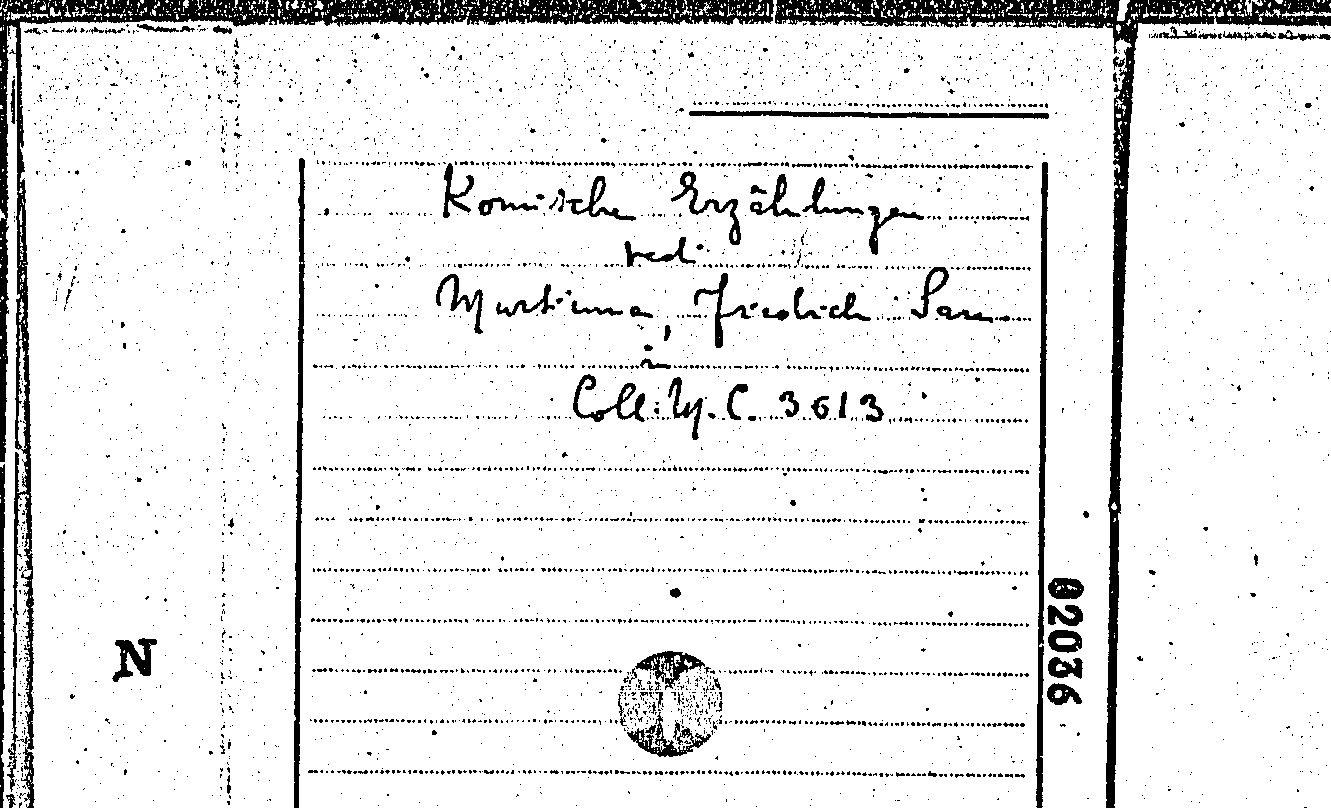 Komische Erzählungen
vedi
Murtinna, Friedrich Sam.
in
Coll. M. C. 3613
N
02036